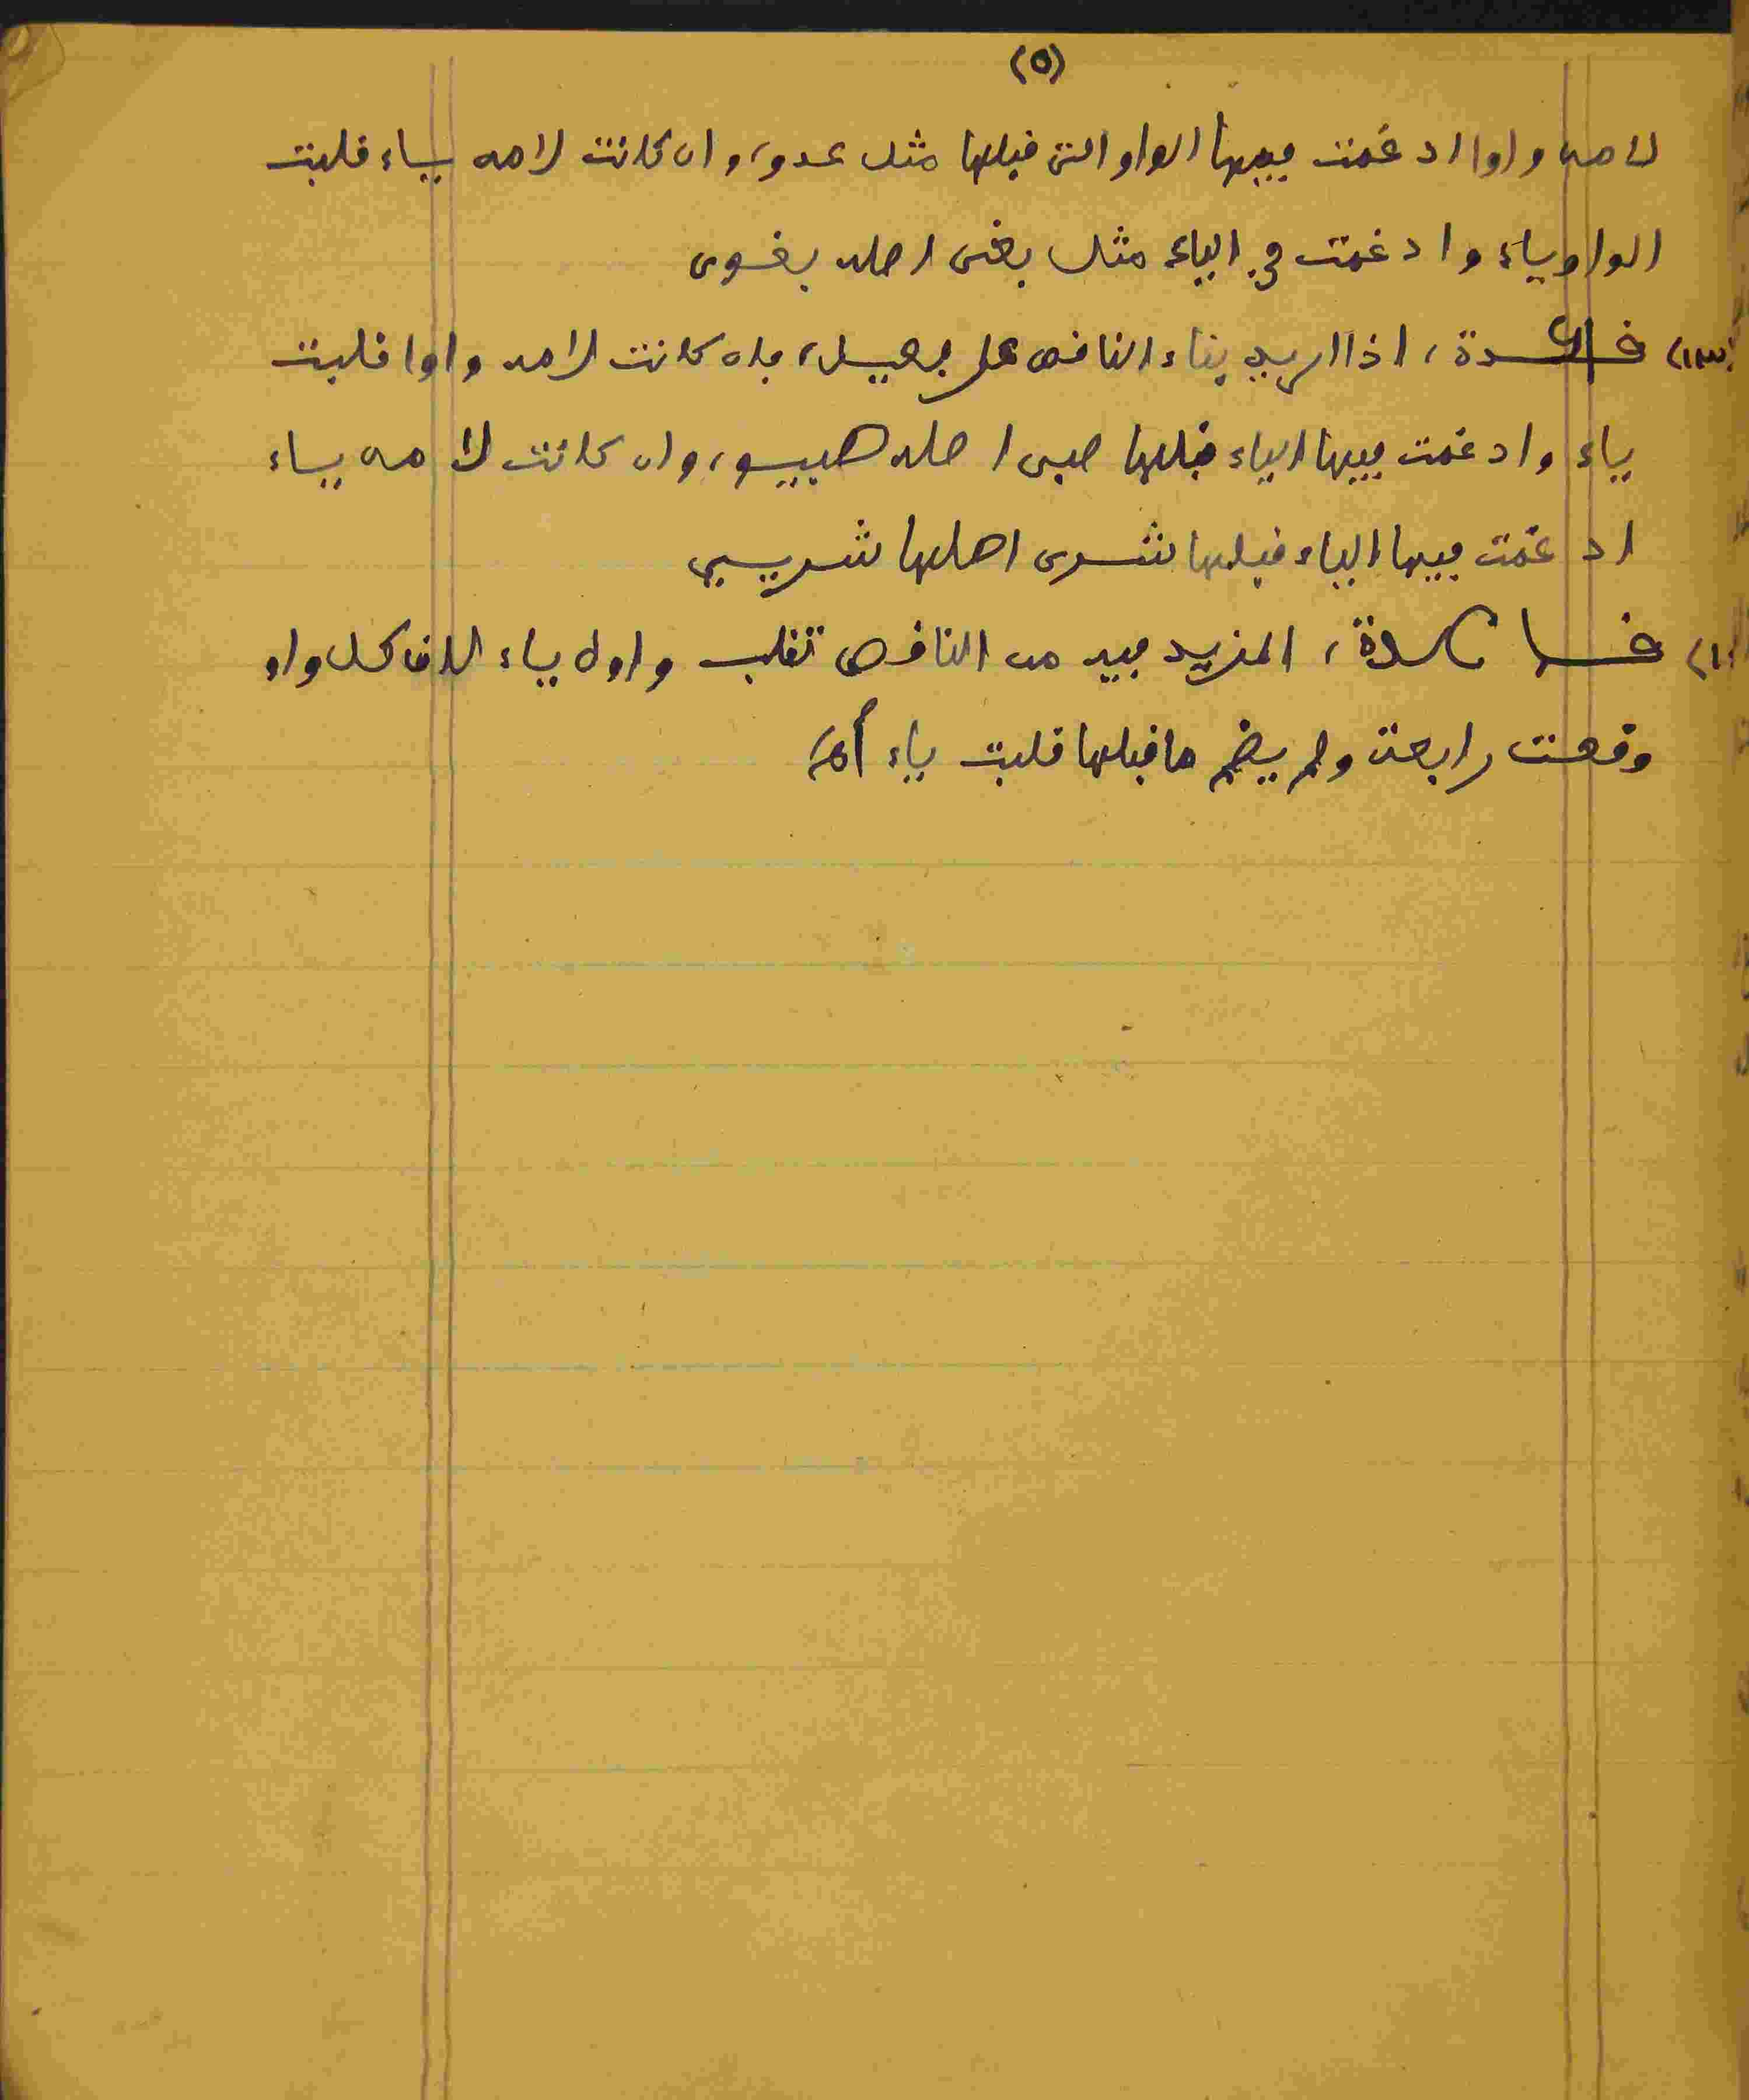 (٥)
لامه واوا ادغمت فيها الواو التى قبلها مثل عدو، وان كانت لامه ياء قلبت
الواو ياء وادغمت في الياء مثل بغى اصله بغوى
(١٣) قاعدة، اذا اريد بناء الناقص على فعيل، فان كانت لامه واوا قلبت
ياء وادغمت فيها الياء قبلها صبى اصله صبيو، وان كانت لامه ياء
ادغمت فيها الياء قبلها شرى اصلها شريي
قاعدة، المزيد فيه من الناقص تقلب واوه ياء لان كل واو
وقعت رابعة ولم يضم ما قبلها قلبت ياء